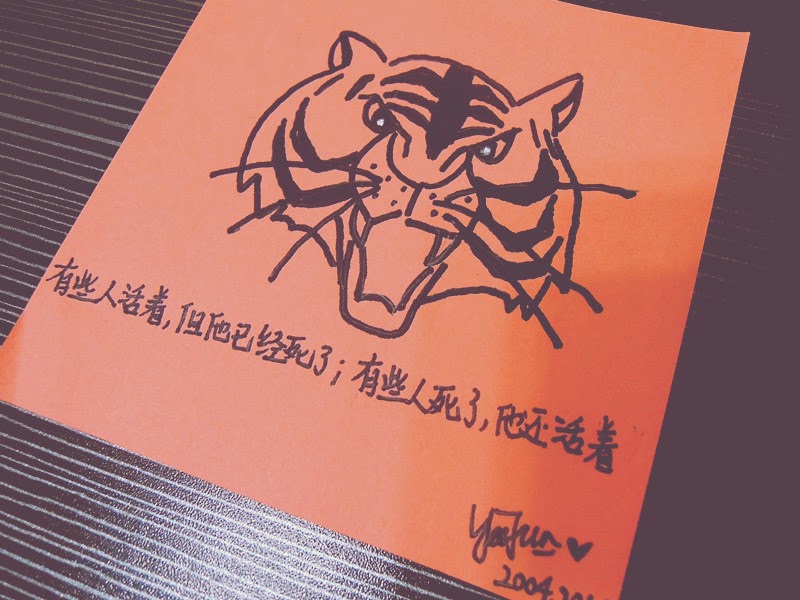 有些人活着,但他已经死了;有些人死了,他还活着